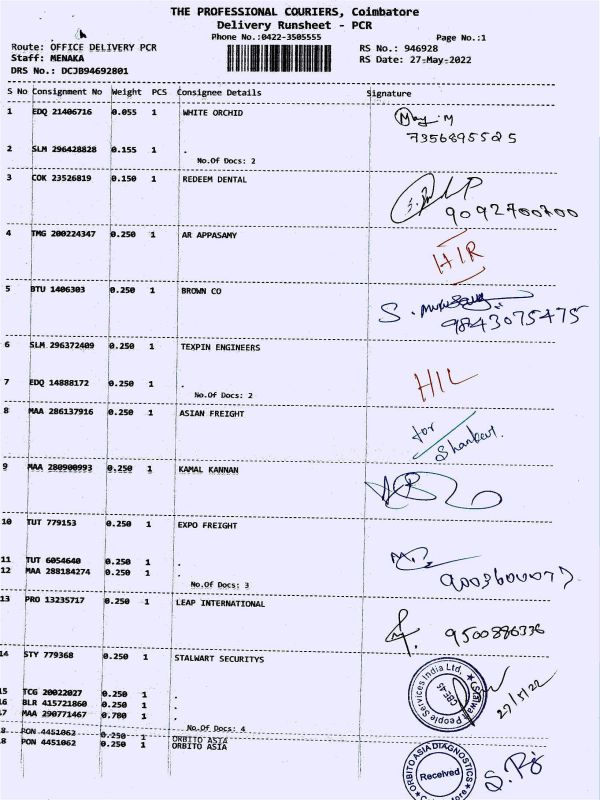 THE PROFESSIONAL COURIERS, Coimbatore
Delivery Runsheet - PCR
Phone No.:0422-3505555 Page No.:1
Route: OFFICE DELIVERY PCR RS No.: 946928
Staff: MENAKA RS Date: 27-May-2022
DRS No.: DCJB94692801
S No Consignment No Weight PCS Consignee Details Signature
1 EDQ 21406716 0.055 1 WHITE ORCHID
7356895525
2 SLM 296428828 0.155 1 .
No.Of Docs: 2
3 COK 23526819 0.150 1 REDEEM DENTAL
9092700700
4 TMG 200224347 0.250 1 AR APPASAMY
HIR
5 BTU 1406303 0.250 1 BROWN CO
S.
9843075475
6 SLM 296372409 0.250 1 TEXPIN ENGINEERS
HIL
7 EDQ 14888172 0.250 1 .
No.Of Docs: 2
8 MAA 286137916 0.250 1 ASIAN FREIGHT
for
Shankar.
9 MAA 280900993 0.250 1 KAMAL KANNAN
10 TUT 779153 0.250 1 EXPO FREIGHT
11 TUT 6054640 0.250 1 .
12 MAA 288184274 0.250 1 .
No.Of Docs: 3
13 PRO 13235717 0.250 1 LEAP INTERNATIONAL
9500886336
14 STY 779368 0.250 1 STALWART SECURITYS
Stalwart People Services India Ltd.
CBE-45
27/5/22
15 TCG 20022027 0.250 1 .
16 BLR 415721860 0.250 1 .
17 MAA 290771467 0.780 1 .
No.Of Docs: 4
18 PON 4451062 0.250 1 ORBITO ASIA
18 PON 4451062 0.250 1 ORBITO ASIA
ORBITO ASIA DIAGNOSTICS
Received